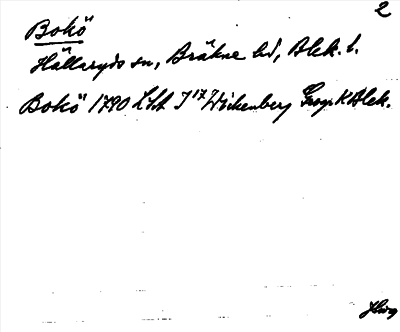 2
Bokö
Hällaryds sn, Bräkne hd, Blek. l.
Bokö 1790 LSA J 17 Wickenberg Geogr K Blek.